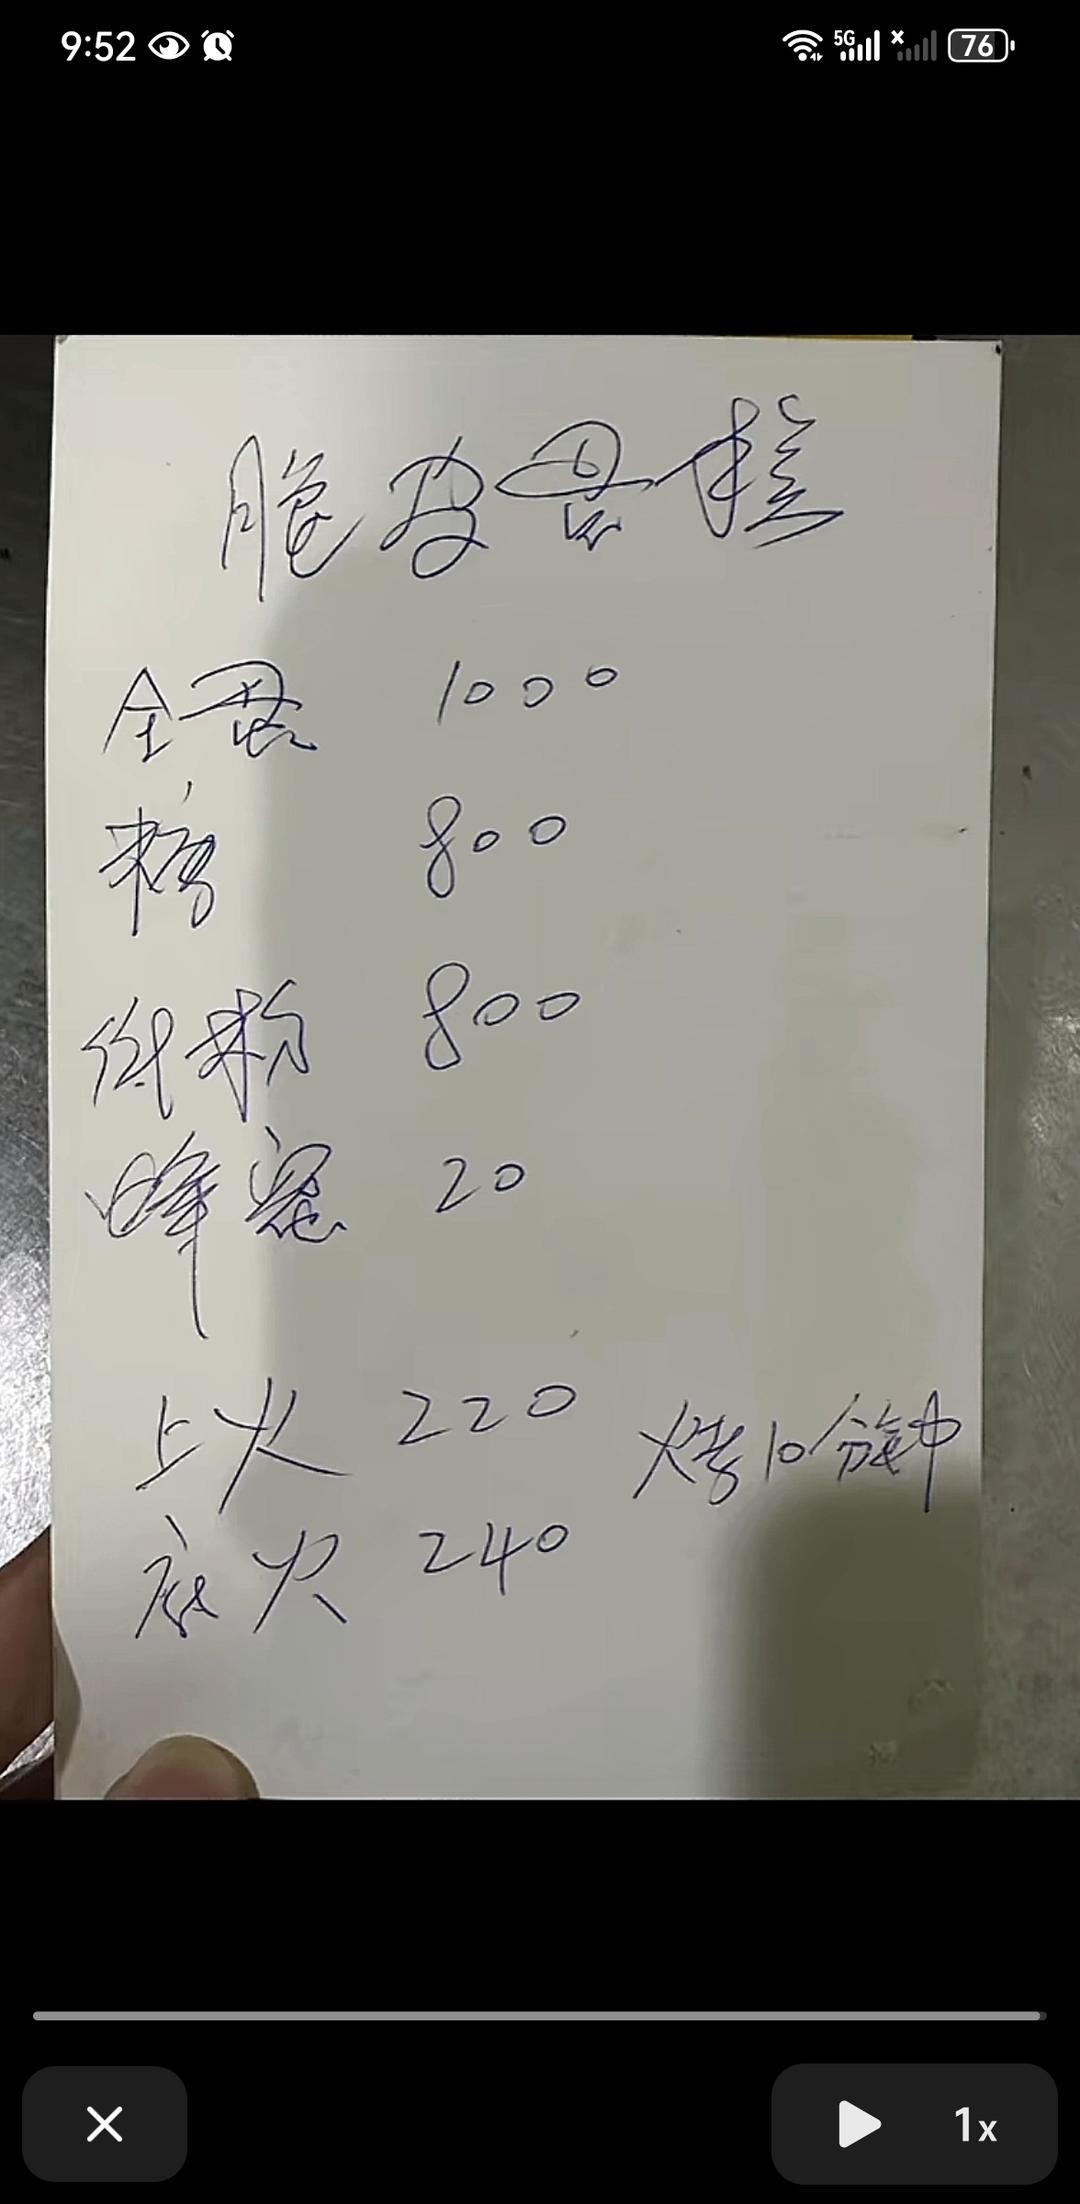 9:52 5G 76
脆皮蛋糕
全蛋 1000
糖 800
低粉 800
蜂蜜 20
上火 220 烤10分钟
底火 240
1x